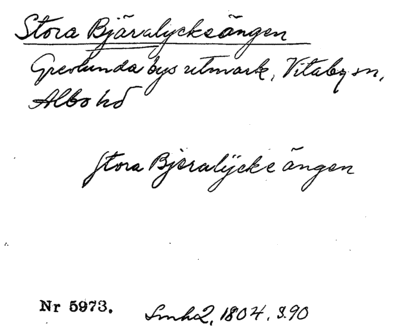 Stora Bjäralycksängen
Grevlunda bys utmark, Vitaby sn,
Albo hd
Stora Bjeralÿcks ängen
Nr 5973. Smh2, 1804. S.90